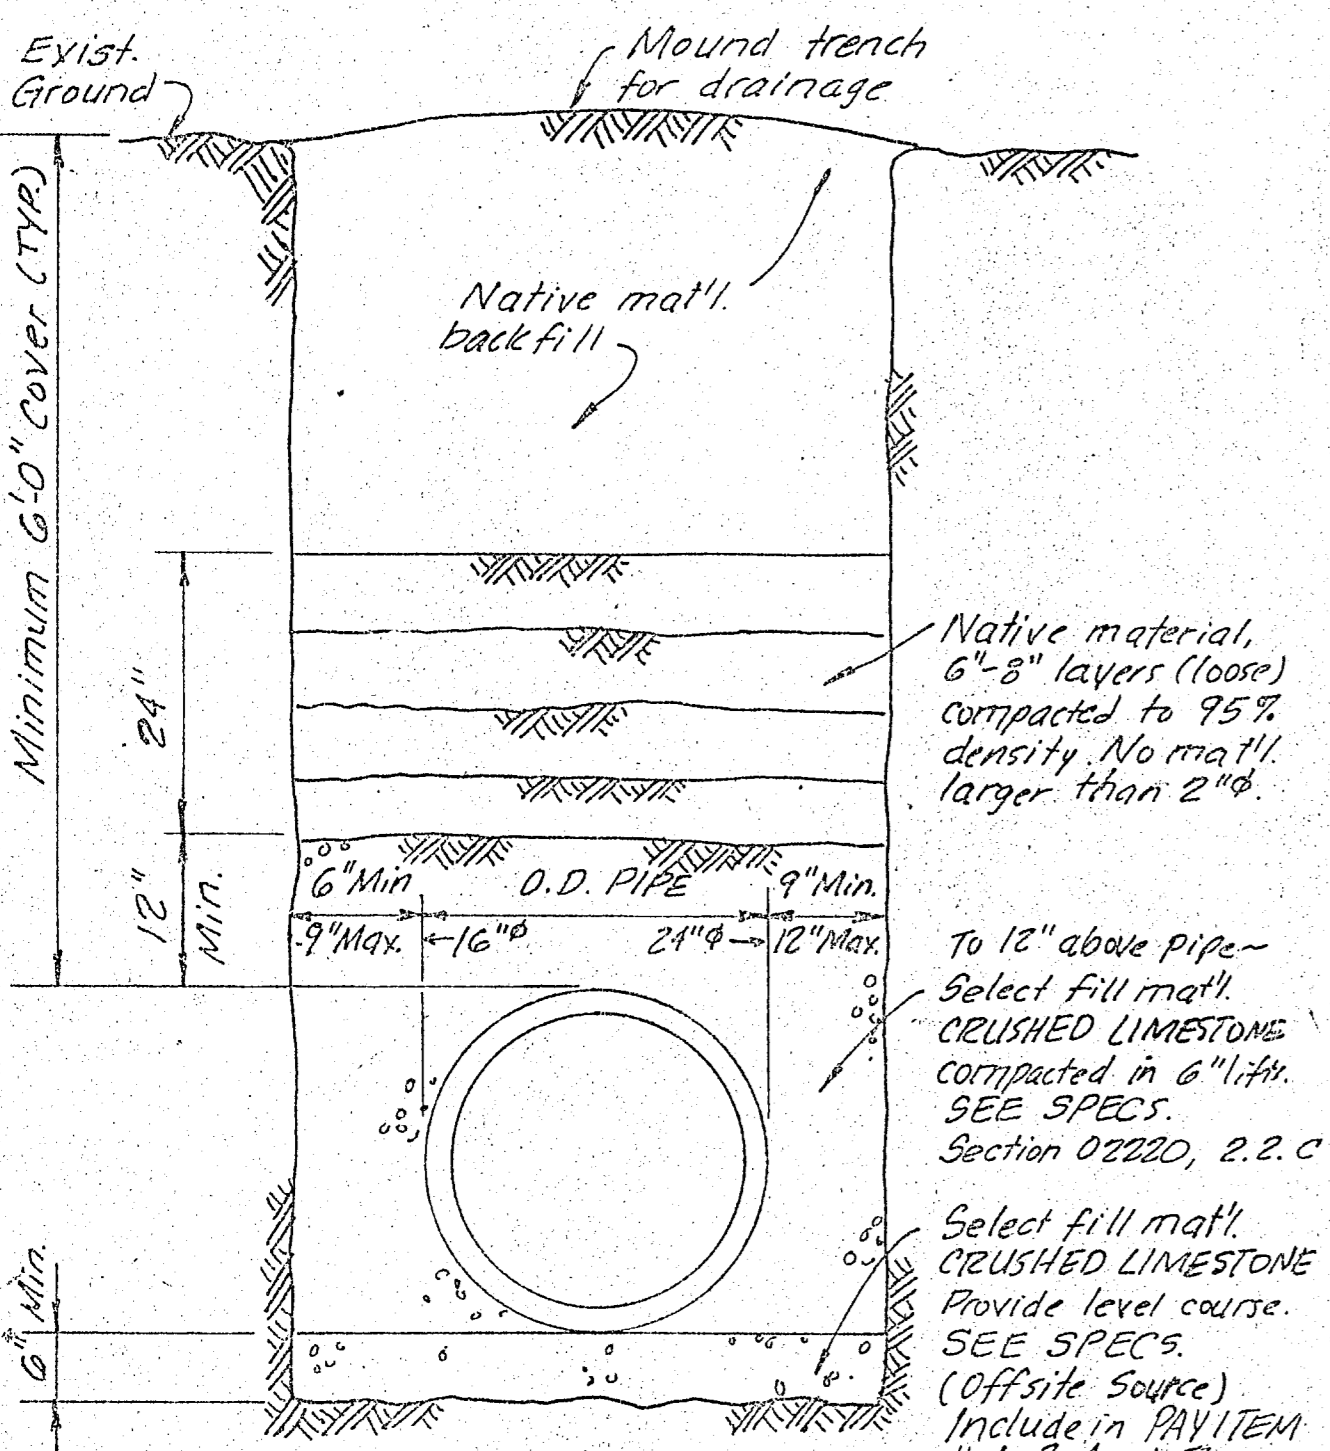 Exist.
Ground
Mound trench
for drainage
Minimum 6'-0" Cover (TYP.)
Native mat'l.
backfill
24"
Native material,
6"-8" layers (loose)
compacted to 95%
density. No mat'l.
larger than 2"Φ.
12"
Min.
6"Min O.D. PIPE 9"Min.
9"Max. 16"Φ 24"Φ 12"Max.
To 12" above pipe~
Select fill mat'l.
CRUSHED LIMESTONE
compacted in 6" lifts.
SEE SPECS.
Section 02220, 2.2.C
6" Min.
Select fill mat'l.
CRUSHED LIMESTONE
Provide level course.
SEE SPECS.
(Offsite Source)
Include in PAY ITEM